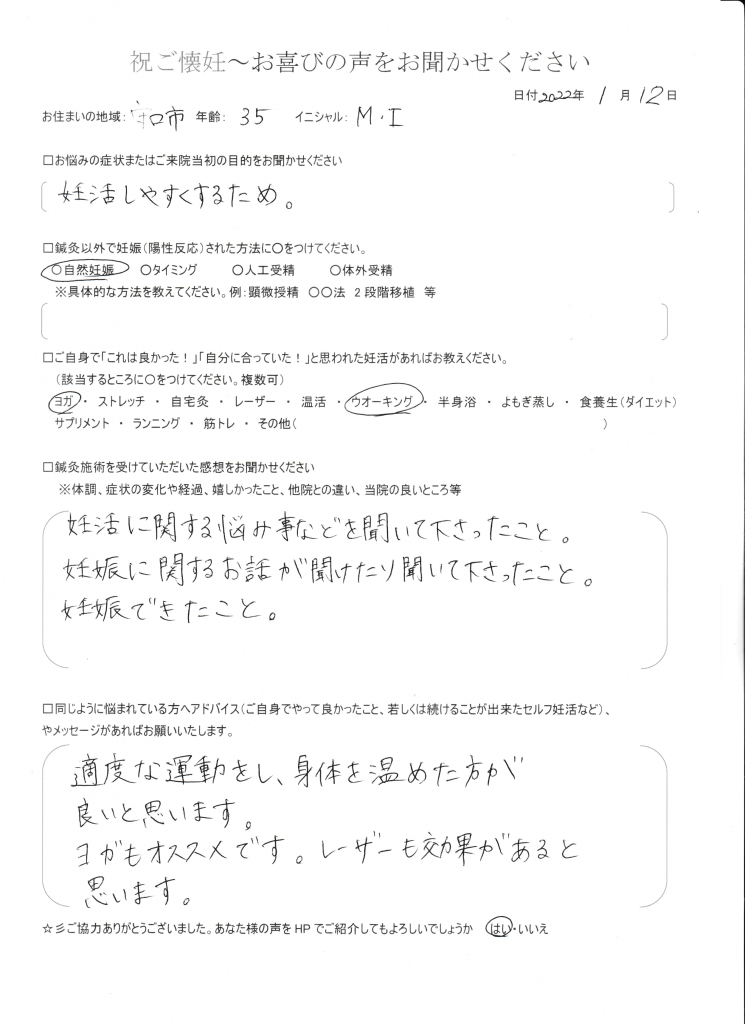 祝ご懐妊～お喜びの声をお聞かせください
日付2022年 1月 12日
お住まいの地域：守口市 年齢： 35 イニシャル： M・I
□お悩みの症状またはご来院当初の目的をお聞かせください
妊活しやすくするため。
□鍼灸以外で妊娠（陽性反応）された方法に○をつけてください。
○自然妊娠 ○タイミング ○人工受精 ○体外受精
※具体的な方法を教えてください。例：顕微授精 ○○法 2段階移植 等
□ご自身で「これは良かった！」「自分に合っていた！」と思われた妊活があればお教えください。
（該当するところに○をつけてください。複数可）
ヨガ ・ ストレッチ ・ 自宅灸 ・ レーザー ・ 温活 ・ ウオーキング ・ 半身浴 ・ よもぎ蒸し ・ 食養生（ダイエット）
サプリメント ・ ランニング ・ 筋トレ ・ その他（ ）
□鍼灸施術を受けていただいた感想をお聞かせください
※体調、症状の変化や経過、嬉しかったこと、他院との違い、当院の良いところ等
妊活に関する悩み事などを聞いて下さったこと。
妊娠に関するお話が聞けたり聞いて下さったこと。
妊娠できたこと。
□同じように悩まれている方へアドバイス（ご自身でやって良かったこと、若しくは続けることが出来たセルフ妊活など）、
やメッセージがあればお願いいたします。
適度な運動をし、身体を温めた方が
良いと思います。
ヨガもオススメです。レーザーも効果があると
思います。
☆彡ご協力ありがとうございました。あなた様の声をHPでご紹介してもよろしいでしょうか はい・いいえ